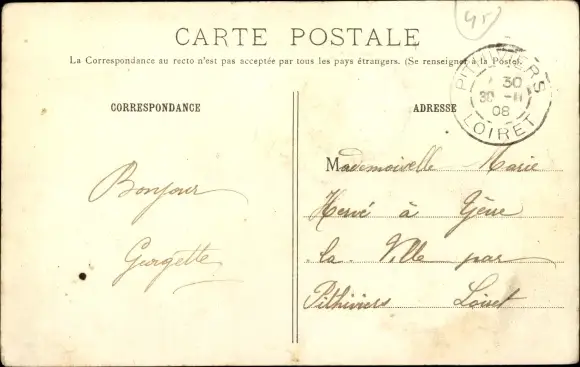 45
CARTE POSTALE
La Correspondance au recto n'est pas acceptée par tous les pays étrangers. (Se renseigner à la Poste).
PITHIVIERS
30
30 -11
08
LOIRET
CORRESPONDANCE
ADRESSE
Bonjour
Gurgette
Mademoiselle Marie
Hervé à Yèvre
la Ville par
Pithiviers Loiret